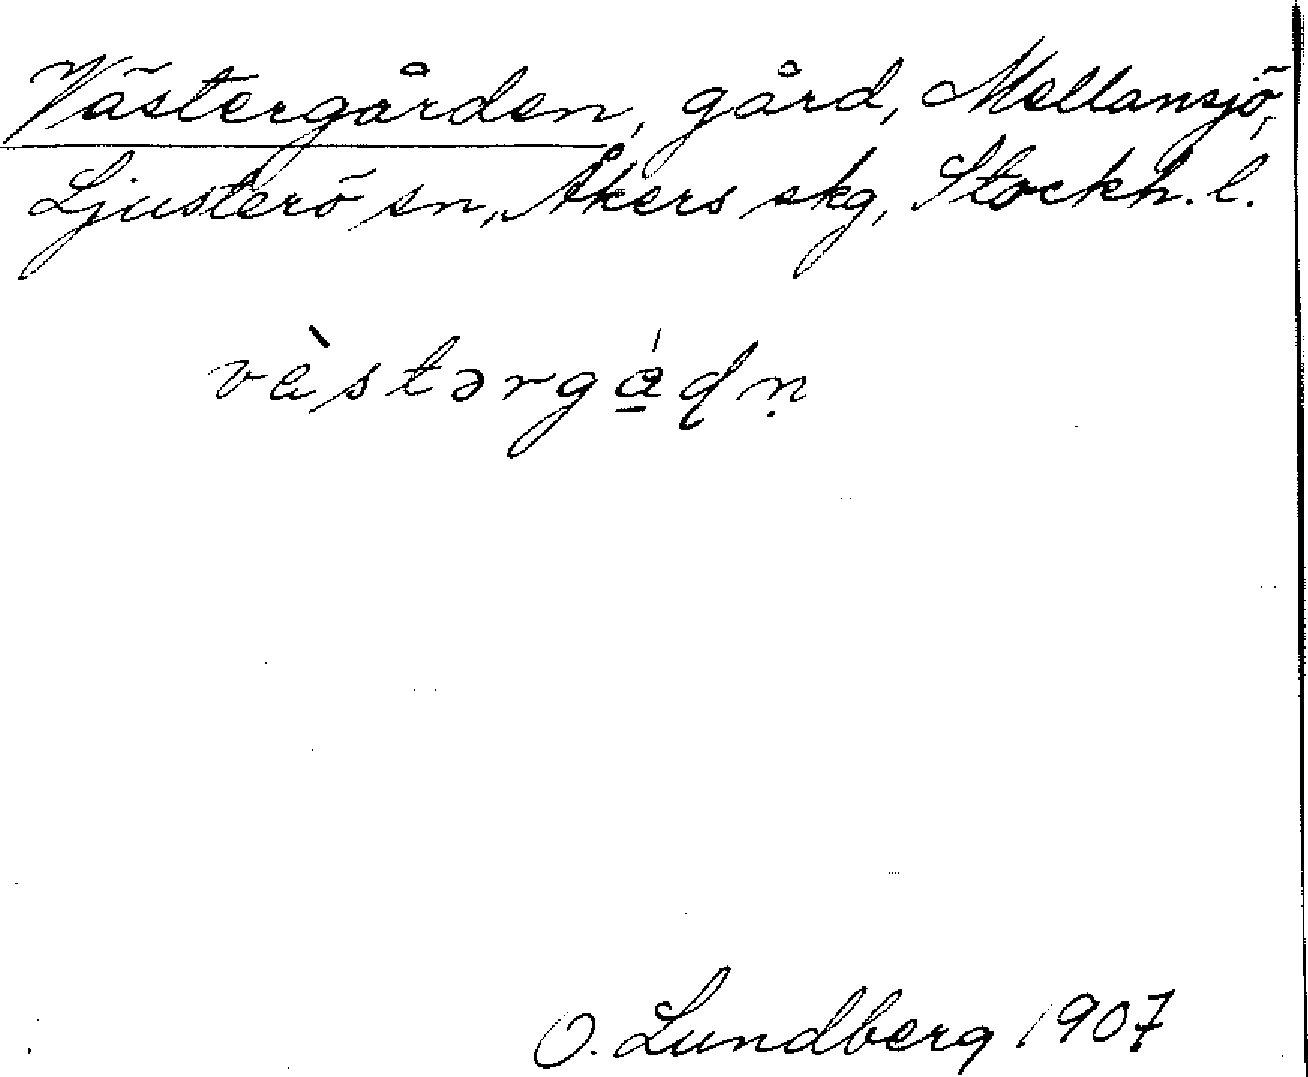 Västergården, gård, Mellansjö,
Ljusterö sn, Åkers skg, Stockh. l.
vèstərgá̱ɖṇ
O. Lundberg 1907